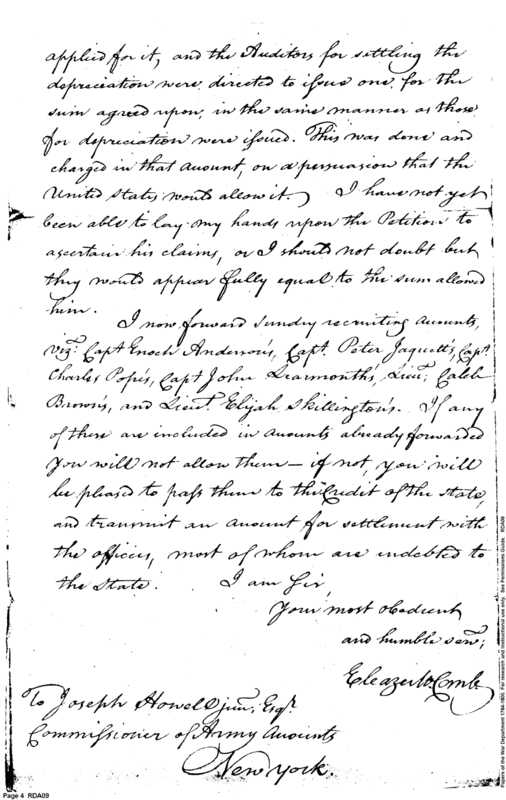 applied for it, and the Auditors for settling the
depreciation were directed to issue one for the
sum agreed upon, in the same manner as those
for depreciation were issued. This was done and
charged in that account, on a persuasion that the
United States would allow it. I have not yet
been able to lay my hands upon the Petition to
ascertain his claims, or I should not doubt but
they would appear fully equal to the sum allowed
him.
I now forward Sundry recruiting accounts,
vizt. Capt. Enoch Anderson's, Capt. Peter Jaquett's, Capt.
Charles Pope's, Capt John Learmonth's, Lieut. Caleb
Brown's, and Lieut. Elijah Skillington's. If any
of these are included in accounts already forwarded
you will not allow them — if not, you will
be pleased to pass them to the Credit of the State,
and transmit an account for settlement with
the officers, most of whom are indebted to
the State. I am Sir,
Your most obedient
and humble servt.
Eleazer McComb
To Joseph Howell junr. Esqr.
Commissioner of Army Accounts
New York.
Page 4 RDA09
Papers of the War Department 1784-1800. For research and instructional use only. See Permissions Guide. RDA09